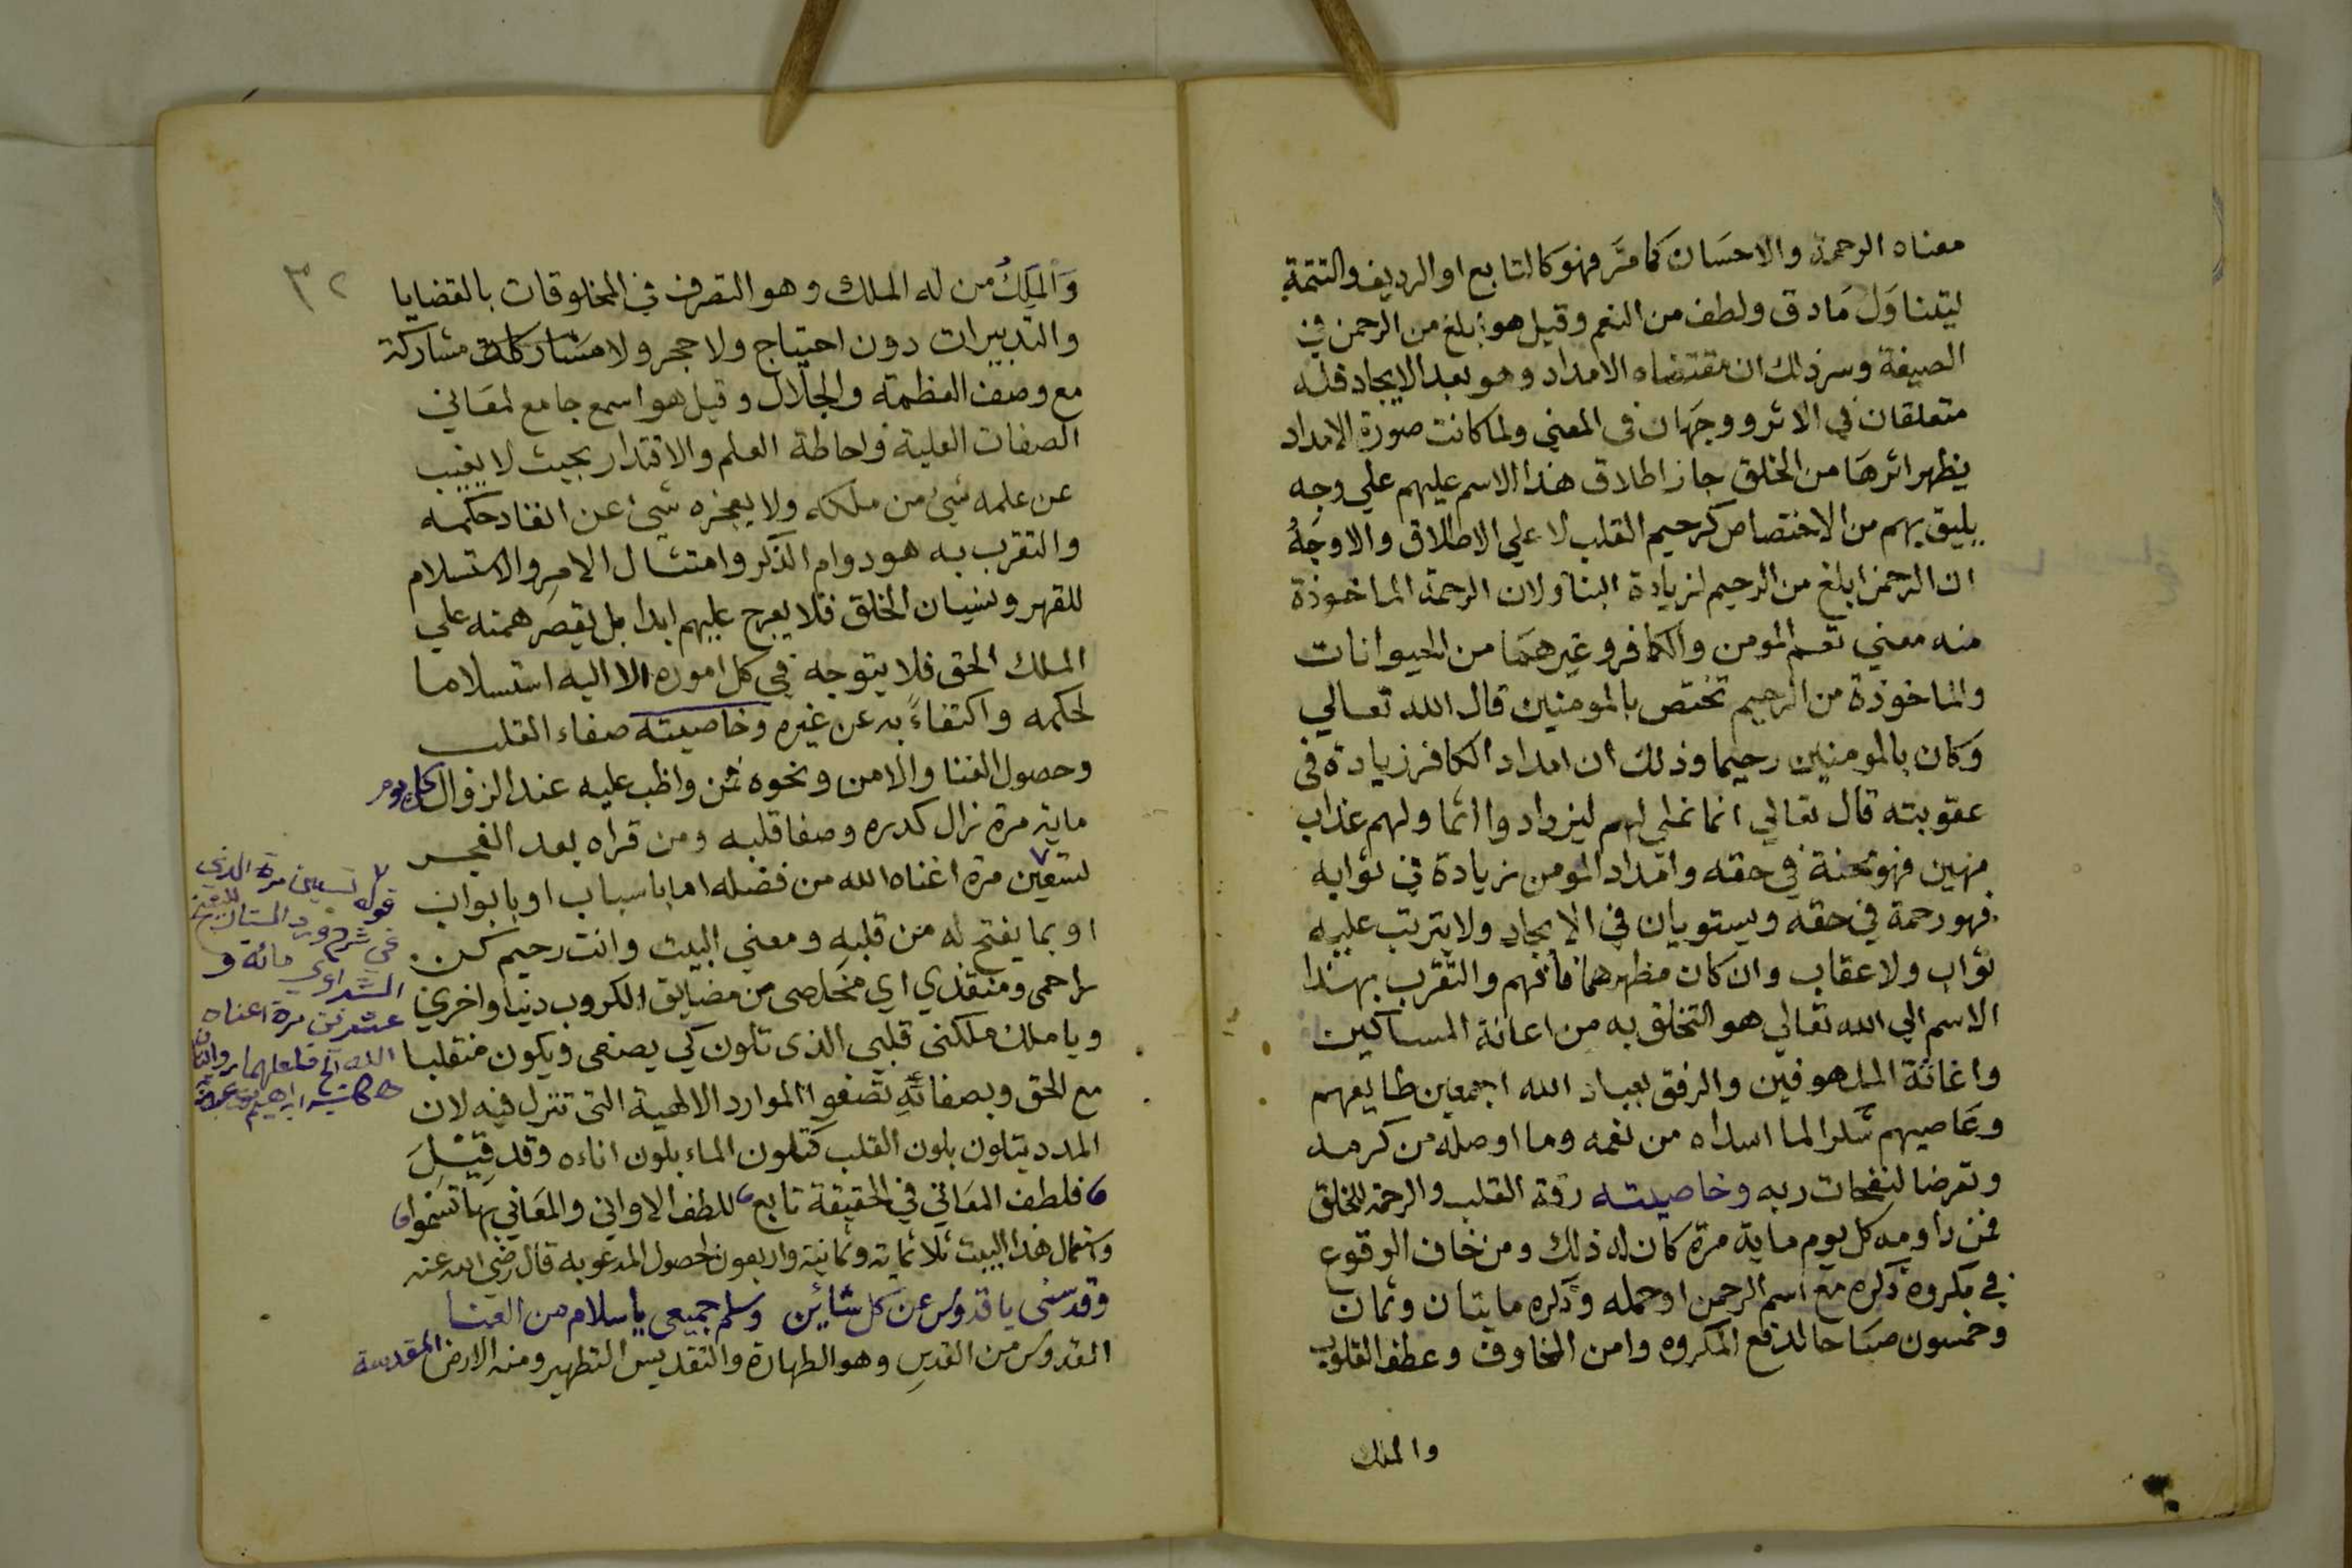 معناه الرحمة والاحسَان كما مرَّ فهوَ كالتابع او الرديف والتتمة
ليتناوَل مَا دق ولطف من النعم وقيل هو ابلغ من الرحمن في
الصيغة وسر ذلك ان مقتضاه الامداد وهو بعد الايجاد فله
متعلقان في الاثر ووجهَان في المعني ولما كانت صورة الامداد
يظهر اثرهَا من الخلق جاز اطلاق هذا الاسم عليهم علي وجه
يليق بهم من الاختصاص كرحيم القلب لا علي الاطلاق والاوجَهُ
ان الرحمن ابلغ من الرحيم لزيادة البنا ولان الرحمة الماخوذة
منه معني تعم المومن والكافر وغيرهمَا من الحيوانات
والماخوذة من الرحيم تختص بالمومنين قال الله تعالي
وكان بالمومنين رحيما وذلك ان امداد الكافر زيادة في
عقوبته قال تعالي انما نملي لهم ليزدادوا اثما ولهم عذاب
مهين فهو محنة في حقه وامداد المومن زيادة في ثوابه
فهو رحمة في حقه ويستويان في الايجاد ولا يترتب عليه
ثواب ولا عقاب وان كان مظهرهما فافهم والتقرب بهذا
الاسم الي الله تعالي هو التخلق به من اعانة المساكين
واغاثة الملهوفين والرفق بعباد الله اجمعين طايعهم
وعَاصيهم شكرا لما اسداه من نعمه وما اوصله من كرمه
وتعرضا لنفحات ربه وخاصيته رقة القلب والرحمة للخلق
فمن داومه كل يوم ماية مرة كان له ذلك ومن خاف الوقوع
في مكروه ذكره مع اسم الرحمن او حمله وذكره مايتان وثمان
وخمسون صبَاحا لدفع المكروه وامن المخاوف وعطف القلوب
والملك
٣٢
وَالملِكُ من له الملك وهو التصرف في المخلوقات بالقضايا
والتدبيرات دون احتياج ولا حجر ولا مشاركة مشاركة
مع وصف العظمة والجلال وقيل هو اسمع جامع لمعَاني
الصفات العلية واحاطة العلم والاقتدار بحيث لا يغيب
عن علمه شيئ من ملكه ولا يعجزه شيئ عن انفاد حكمه
والتقرب به هو دوام الذكر وامتثال الامر والاستسلام
للقهر ونسيان الخلق فلا يعرج عليهم ابدا بل يقصر همته علي
الملك الحق فلا يتوجه في كل اموره الا اليه استسلاما
لحكمه واكتفاءً به عن غيره وخاصيته صفاء القلب
وحصول الغنا والامن ونحوه فمن واظب عليه عند الزوال كل يوم
ماية مرة زال كدره وصفا قلبه ومن قراه بعد الفجر
لسبعين مرة اغناه الله من فضله اما باسباب او بابواب
او بما يفتح له من قلبه ومعني البيت وانت رحيم كن
راحمى ومنقذي اي مخلصى من مضايق الكروب دنيا واخري
ويا ملك ملكنى قلبي الذى تلون كي يصفى ويكون منقلبا
مع الحق وبصفائه تصفوا الموارد الالهية التى تنزل فيه لان
المدد يتلون بلون القلب كتلون الماء بلون اناءه وقد قيْلَ
فلطف المعَاني في الحقيقة تابع للطف الاواني والمعَاني بها تسموا
واستعمال هذا البيت ثلاثماية وثمانية واربعون لحصول المدعو به قال رضي الله عنه
وقدسنى يا قدوس عن كل شائن وسلم جميعى يا سلام من العنا
القدوس من القدسِ وهو الطهارة والتقديس التطهير ومنه الارض المقدسة
قوله تسعين مرة الذي
في شرح ورد الستار للشيخ
الشرقاوي مائة و
عشرين مرة اغناه
الله الخ فلعلهما روايتان